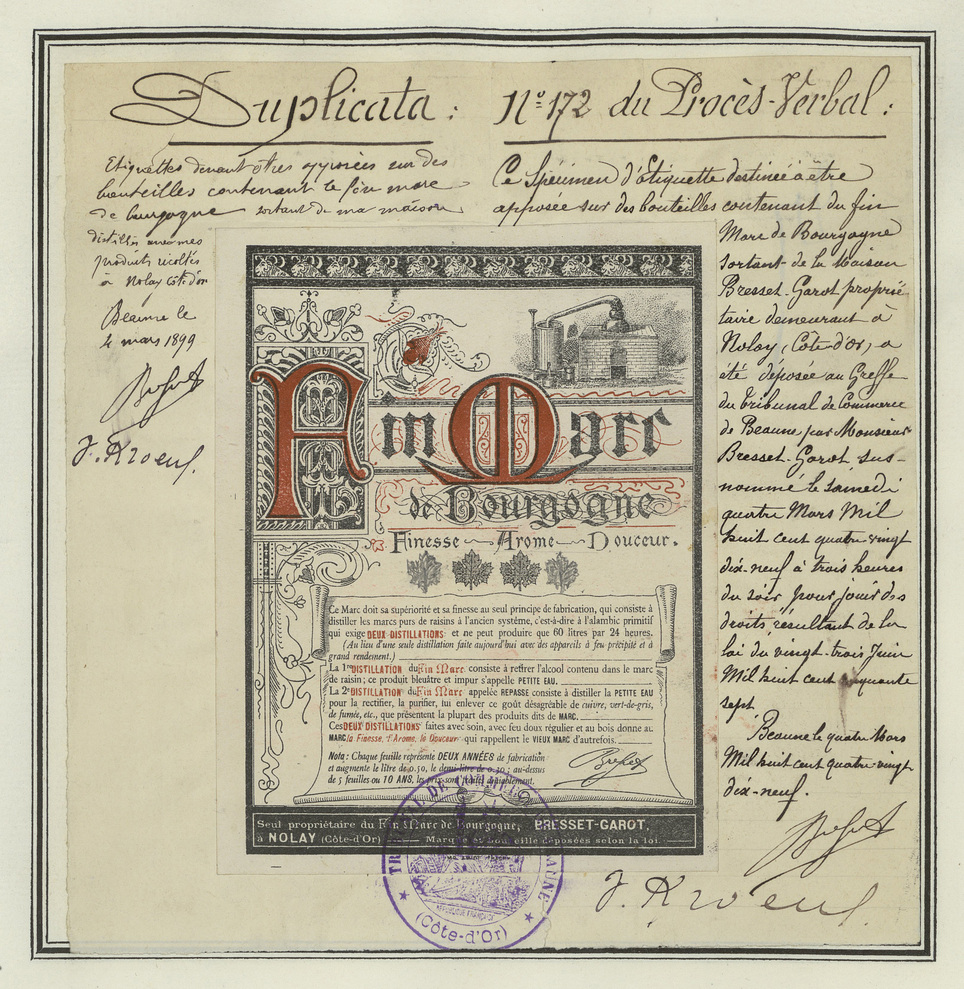 Duplicata :
N° 172 du Procès-Verbal :
Etiquettes devant êtres apposées sur des
bouteilles contenant le fin marc
de bourgogne sortant de ma maison
distillés avec mes
produits récoltés
à Nolay Côte d'or
Beaune le
4 mars 1899
Ce Spécimen d'étiquette destinée à être
apposée sur des bouteilles contenant du fin
Marc de Bourgogne
sortant de la Maison
Bresset-Garot proprié
taire demeurant à
Nolay, (Côte-d'or), a
été déposée au Greffe
du tribunal de Commerce
de Beaune, par Monsieur
Bresset-Garot, sus-
nommé le samedi
quatre Mars Mil
huit cent quatre-vingt
dix-neuf à trois heures
du soir pour jouir des
droits résultant de la
loi du vingt-trois Juin
Mil huit cent cinquante
sept.
Beaune le quatre Mars
Mil huit cent quatre-vingt
dix-neuf.
Fin Marc
de Bourgogne
Finesse Arome Douceur.
Ce Marc doit sa supériorité et sa finesse au seul principe de fabrication, qui consiste à
distiller les marcs purs de raisins à l'ancien système, c'est-à-dire à l'alambic primitif
qui exige DEUX DISTILLATIONS et ne peut produire que 60 litres par 24 heures.
(Au lieu d'une seule distillation faite aujourd'hui avec des appareils à feu précipité et à
grand rendement.)
La 1re DISTILLATION du Fin Marc consiste à retirer l'alcool contenu dans le marc
de raisin; ce produit bleuâtre et impur s'appelle PETITE EAU.
La 2e DISTILLATION du Fin Marc appelée REPASSE consiste à distiller la PETITE EAU
pour la rectifier, la purifier, lui enlever ce goût désagréable de cuivre, vert-de-gris,
de fumée, etc., que présentent la plupart des produits dits de MARC.
Ces DEUX DISTILLATIONS faites avec soin, avec feu doux régulier et au bois donne au
MARC la Finesse, l'Arome, la Douceur qui rappellent le VIEUX MARC d'autrefois.
Nota : Chaque feuille représente DEUX ANNÉES de fabrication
et augmente le litre de 0.50, le demi-litre de 0.30 ; au-dessus
de 5 feuilles ou 10 ANS, les prix sont traités amiablement.
Seul propriétaire du Fin Marc de Bourgogne, BRESSET-GAROT,
à NOLAY (Côte-d'Or) Marque et bouteille déposées selon la loi.
TRIBUNAL DE COMMERCE BEAUNE
RÉPUBLIQUE FRANÇAISE
(Côte-d'Or)